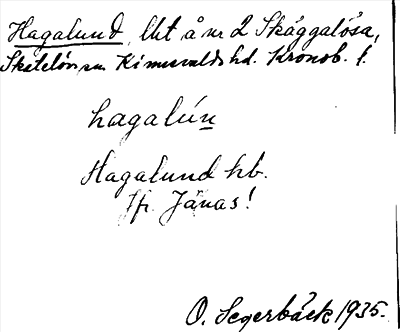 Hagalund, lht å nr 2 Skäggalösa,
Skatelövs sn Kinnevalds hd. Kronob. l.
hagalún
Hagalund hb.
Jfr Jänas!
O. Segerbäck 1935.